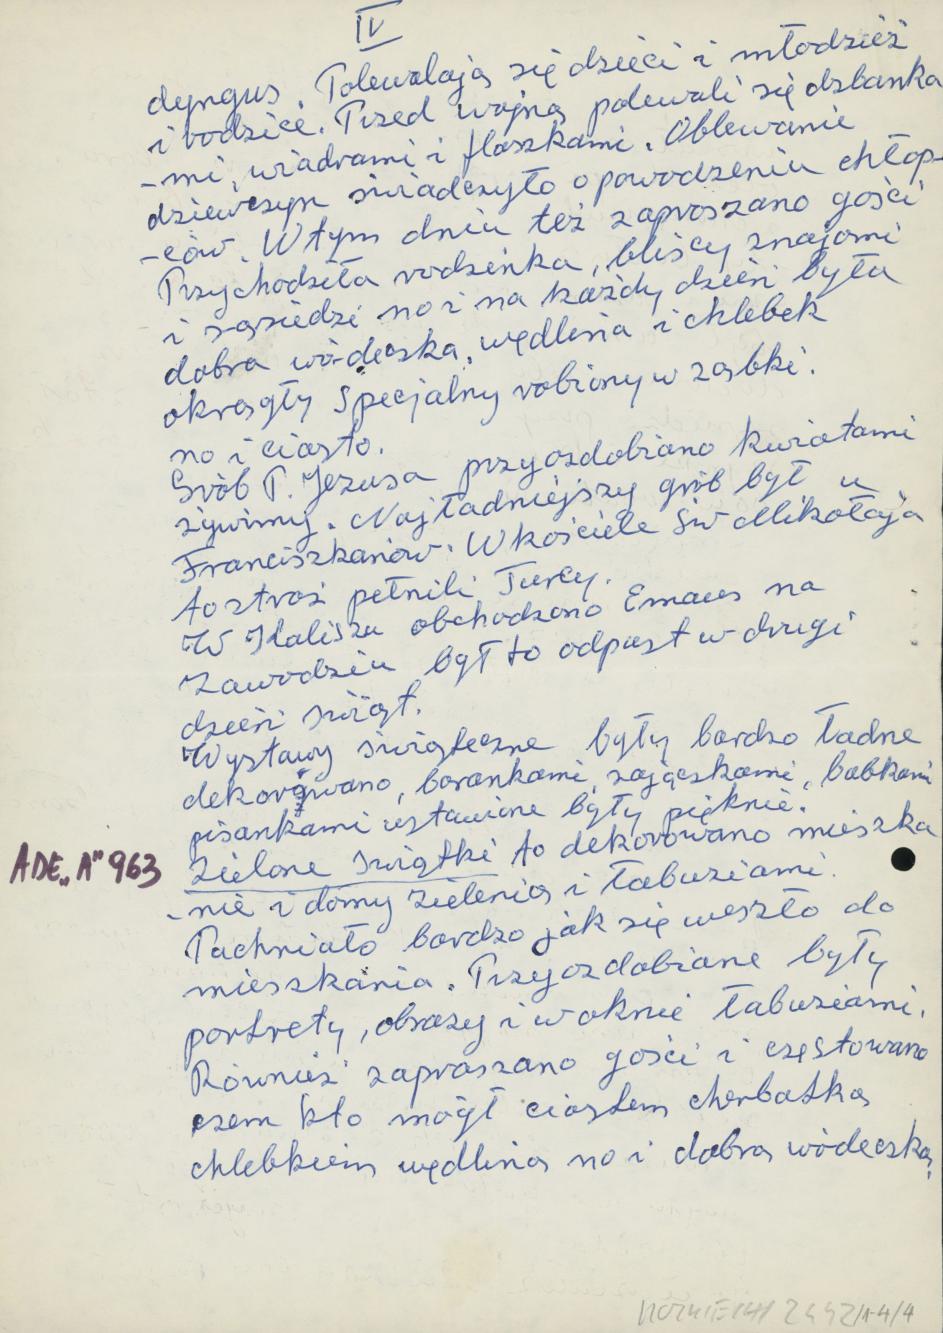 IV
dyngus. Polewalają się dzieci i młodzież
i rodzice. Przed wojną polewali się dzbanka
-mi, wiadrami i flaszkami. Oblewanie
dziewczyn świadczyło o powodzeniu chłop-
-ców. W tym dniu też zapraszano gości
Przychodziła rodzinka, bliscy znajomi
i sąsiedzi no i na każdy dzień była
dobra wódeczka, wędlina i chlebek
okrągły specjalny robiony w ząbki.
no i ciasto.
Grób P. Jezusa przyozdobiano kwiatami
żywimy. Najładniejszy grób był u
Franciszkanów. W kościele Św Mikołaja
to straż pełnili Turcy.
W Kaliszu obchodzono Emaus na
Zawodziu był to odpust w drugi
dzień świąt.
Wystawy świąteczne były bardzo ładne
dekorowano, barankami, zajączkami, babkami
pisankami ustawione były pięknie.
ADE „A" 963
Zielone Świątki to dekorowano mieszka
-nie i domy zielenią i tabuziami.
Pachniało bardzo jak się weszło do
mieszkania. Przyozdabiane były
portrety, obrazy i w oknie tabuziami.
Również zapraszano gości i częstowano
czem kto mógł ciastem cherbatką
chlebkiem wędliną no i dobrą wódeczką.
2442/1-4/4